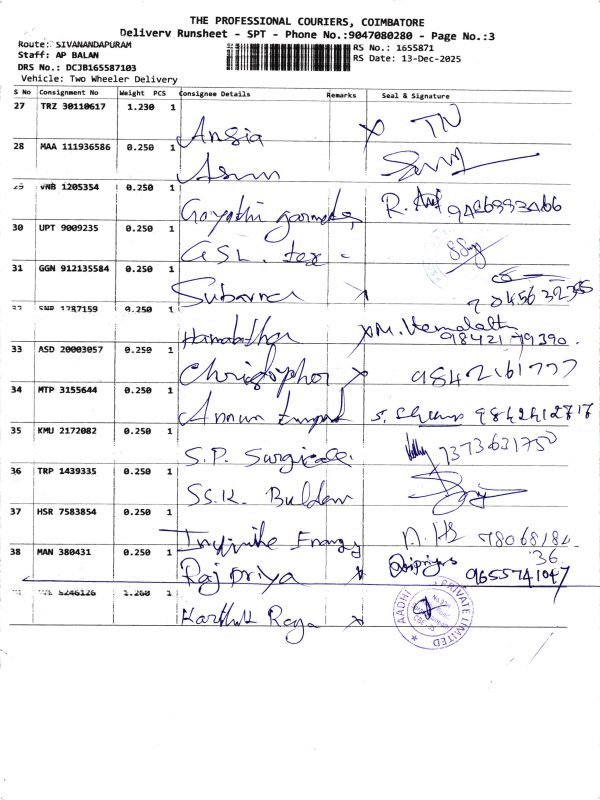 THE PROFESSIONAL COURIERS, COIMBATORE
Delivery Runsheet - SPT - Phone No.:9047080280 - Page No.:3
Route: SIVANANDAPURAM
Staff: AP BALAN
DRS No.: DCJB165587103
Vehicle: Two Wheeler Delivery
RS No.: 1655871
RS Date: 13-Dec-2025
S No Consignment No Weight PCS Consignee Details Remarks Seal & Signature
27 TRZ 30110617 1.230 1
Angia x TN
28 MAA 111936586 0.250 1
Arun
29 VNB 1205354 0.250 1
Gayathi R.
30 UPT 9009235 0.250 1
GSL. tex -
31 GGN 912135584 0.250 1
Subarna
1787159 0.250 1
x M. Hemalatha
9842179390.
33 ASD 20003057 0.250 1
Christopher x 9842161777
34 MTP 3155644 0.250 1
9842412717
35 KMU 2172082 0.250 1
S.P. Surgicals. 7373631750
36 TRP 1439335 0.250 1
SS.K. Buldem
37 HSR 7583854 0.250 1
Infinite Energy
36.
38 MAN 380431 0.250 1
Raj priya x 9655741047
6246126 1.260 1
Karthik Raja x
AADHI PRIVATE LIMITED